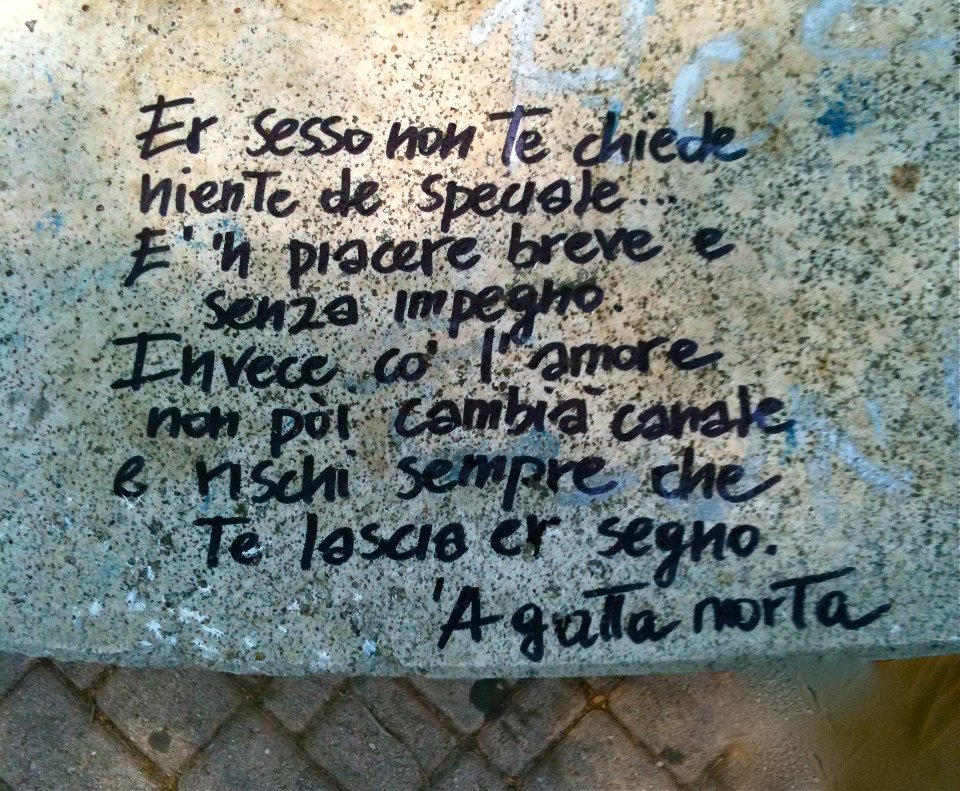 Er sesso non Te chiede
nienTe de speciale...
E' 'n piacere breve e
senza impegno.
Invece co' l'amore
non pòi cambià canale
e rischi sempre che
Te lascia er segno.
'A gatta morta